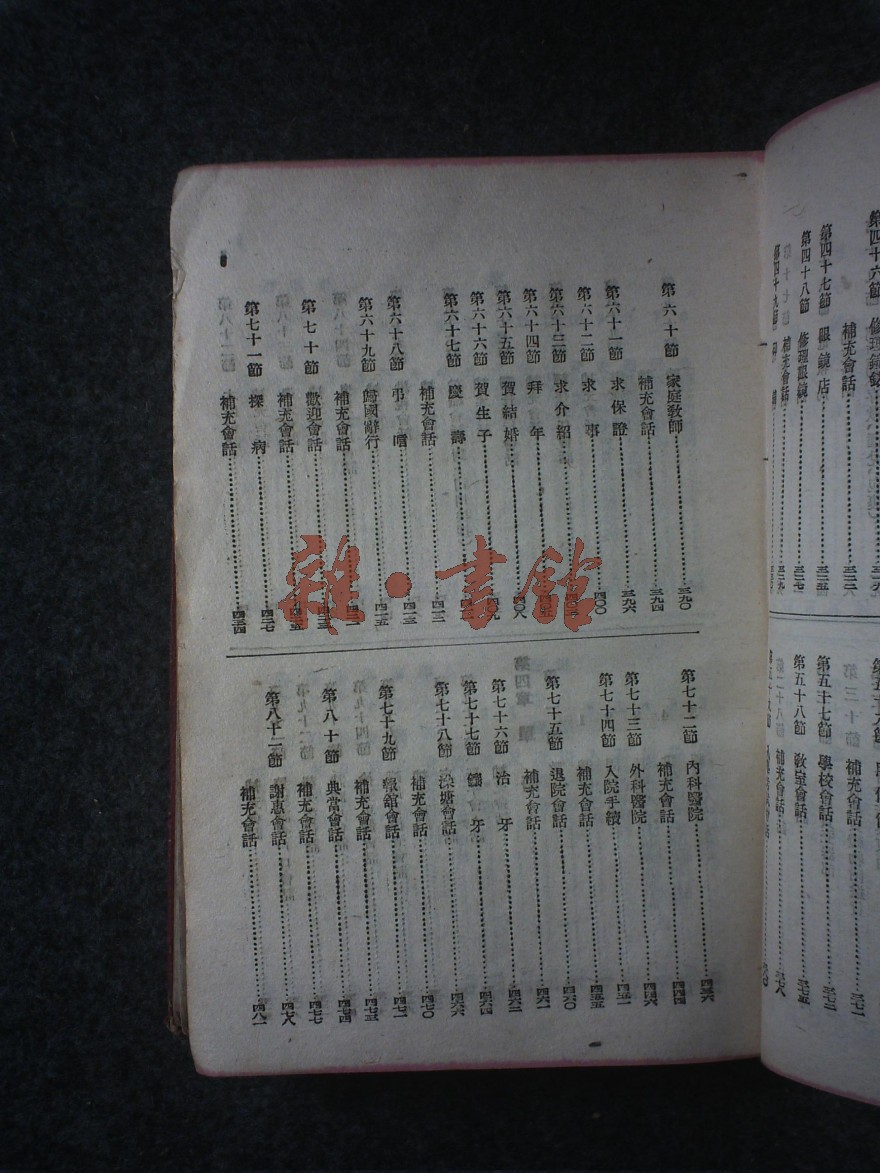 第六十節 家庭教師 三九〇
補充會話 三九四
第六十一節 求保證 三九六
第六十二節 求事 四〇〇
第六十三節 求介紹
第六十四節 拜年
第六十五節 賀結婚 四〇八
第六十六節 賀生子
第六十七節 慶壽
補充會話 四一二
第六十八節 弔唁 四一三
第六十九節 歸國辭行 四一五
補充會話
第七十節 歡迎會話
補充會話
第七十一節 探病 四二七
補充會話 四三四
第七十二節 內科醫院 四三六
補充會話 四四四
第七十三節 外科醫院 四四六
第七十四節 入院手續 四五一
補充會話 四五五
第七十五節 退院會話 四六〇
補充會話 四六一
第七十六節 治牙 四六二
第七十七節 鑲牙 四六四
第七十八節 澡塘會話 四六六
補充會話 四七〇
第七十九節 報館會話 四七一
補充會話 四七三
第八十節 典當會話 四七四
補充會話 四七七
第八十二節 謝惠會話 四七八
補充會話 四八一
第四十六節 修理鐘錶
補充會話 三二六
第四十七節 眼鏡店 三二五
第四十八節 修理眼鏡 三二七
補充會話
補充會話 三七一
第五十七節 學校會話 三七二
第五十八節 教室會話 三七五
補充會話 三七八
雜·書館